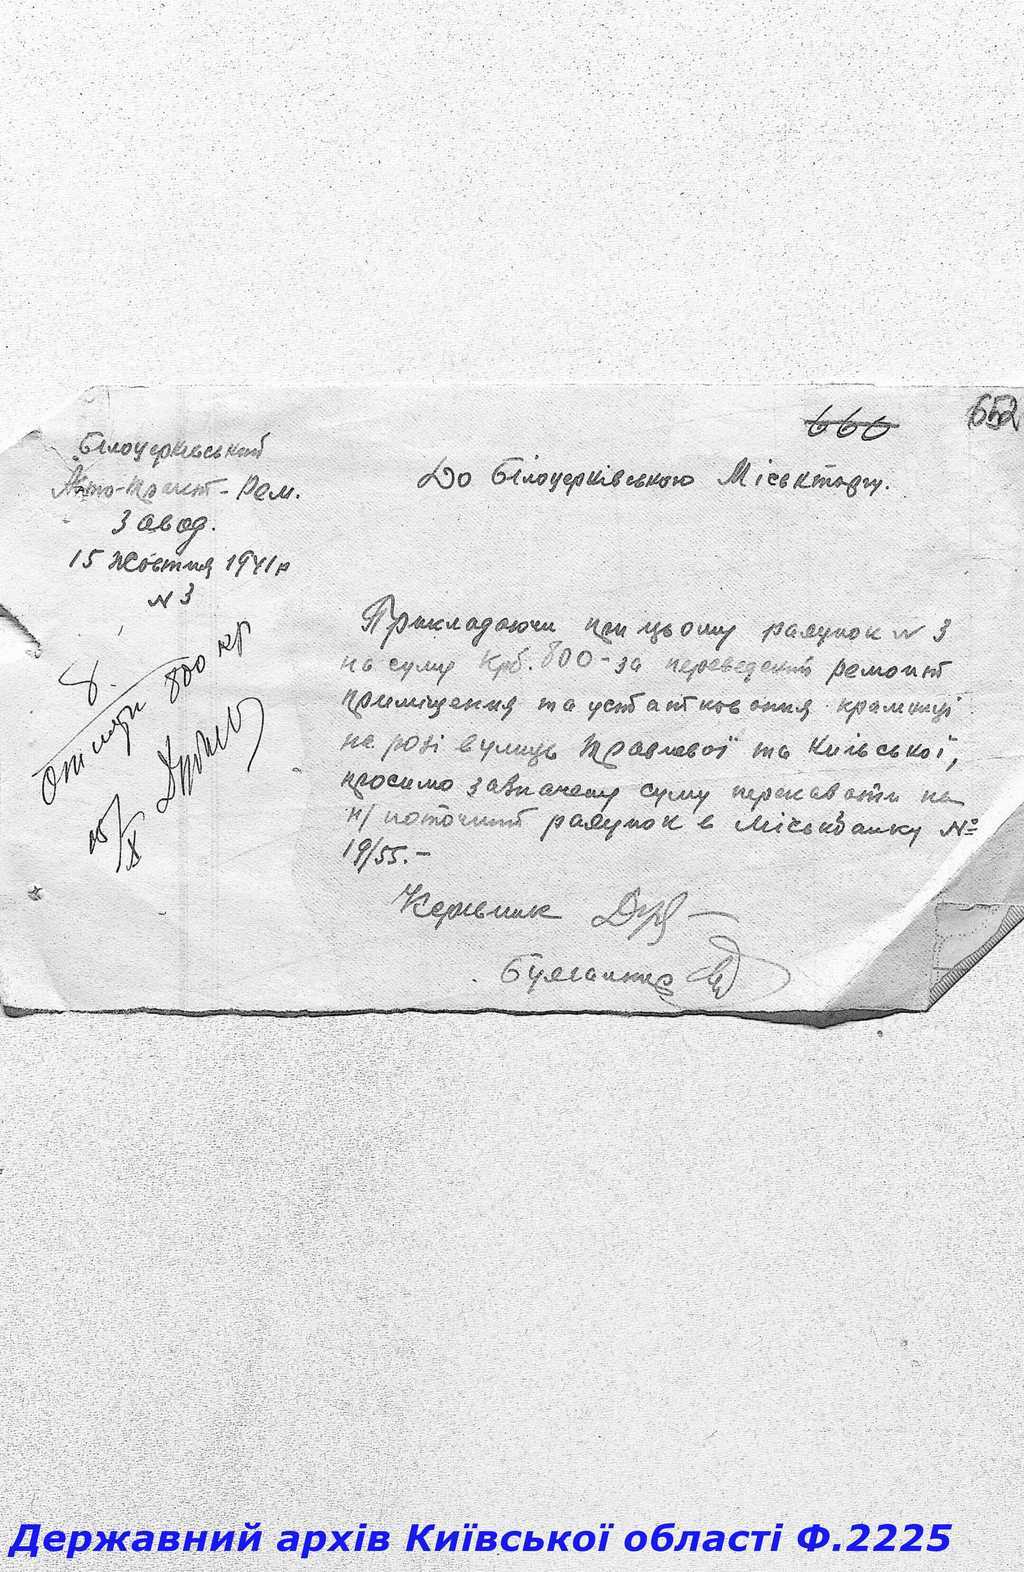 666
652
Білоцерківський
Авто-Тракт-Рем.
Завод.
15 Жовтня 1941 р
N 3
До Білоцерківською Міськторгу.
Прикладаючи при цьому рахунок N 3
на суму Крб. 800 - за переведений ремонт
приміщення та устатковання крамниці
на розі вулиць Травневої та Київської,
просимо зазначену суму переказати на
н/ поточний рахунок в Міськбанку №
19/55.-
Керівник
Бухгалтер
8.
800 кр
X
Державний архів Київської області Ф.2225